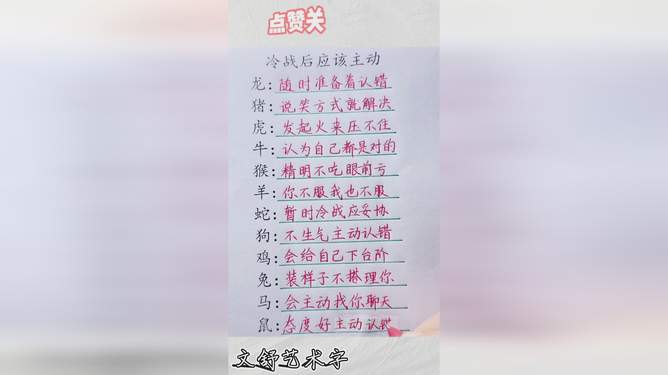 点赞关
冷战后应该主动
龙:随时准备着认错
猪:说笑方式就解决
虎:发起火来压不住
牛:认为自己都是对的
猴:精明不吃眼前亏
羊:你不服我也不服
蛇:暂时冷战应妥协
狗:不生气主动认错
鸡:会给自己下台阶
兔:装样子不搭理你
马:会主动找你聊天
鼠:态度好主动认错
文舒艺术字